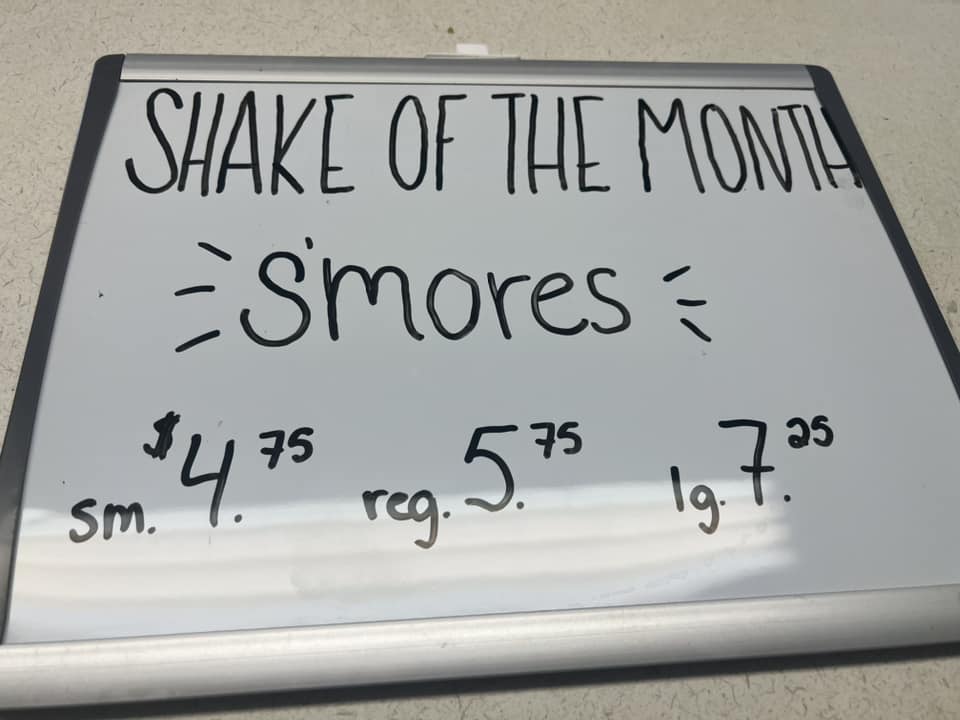 SHAKE OF THE MONTH
S'mores
sm. $4.75 reg. 5.75 lg. 7.25